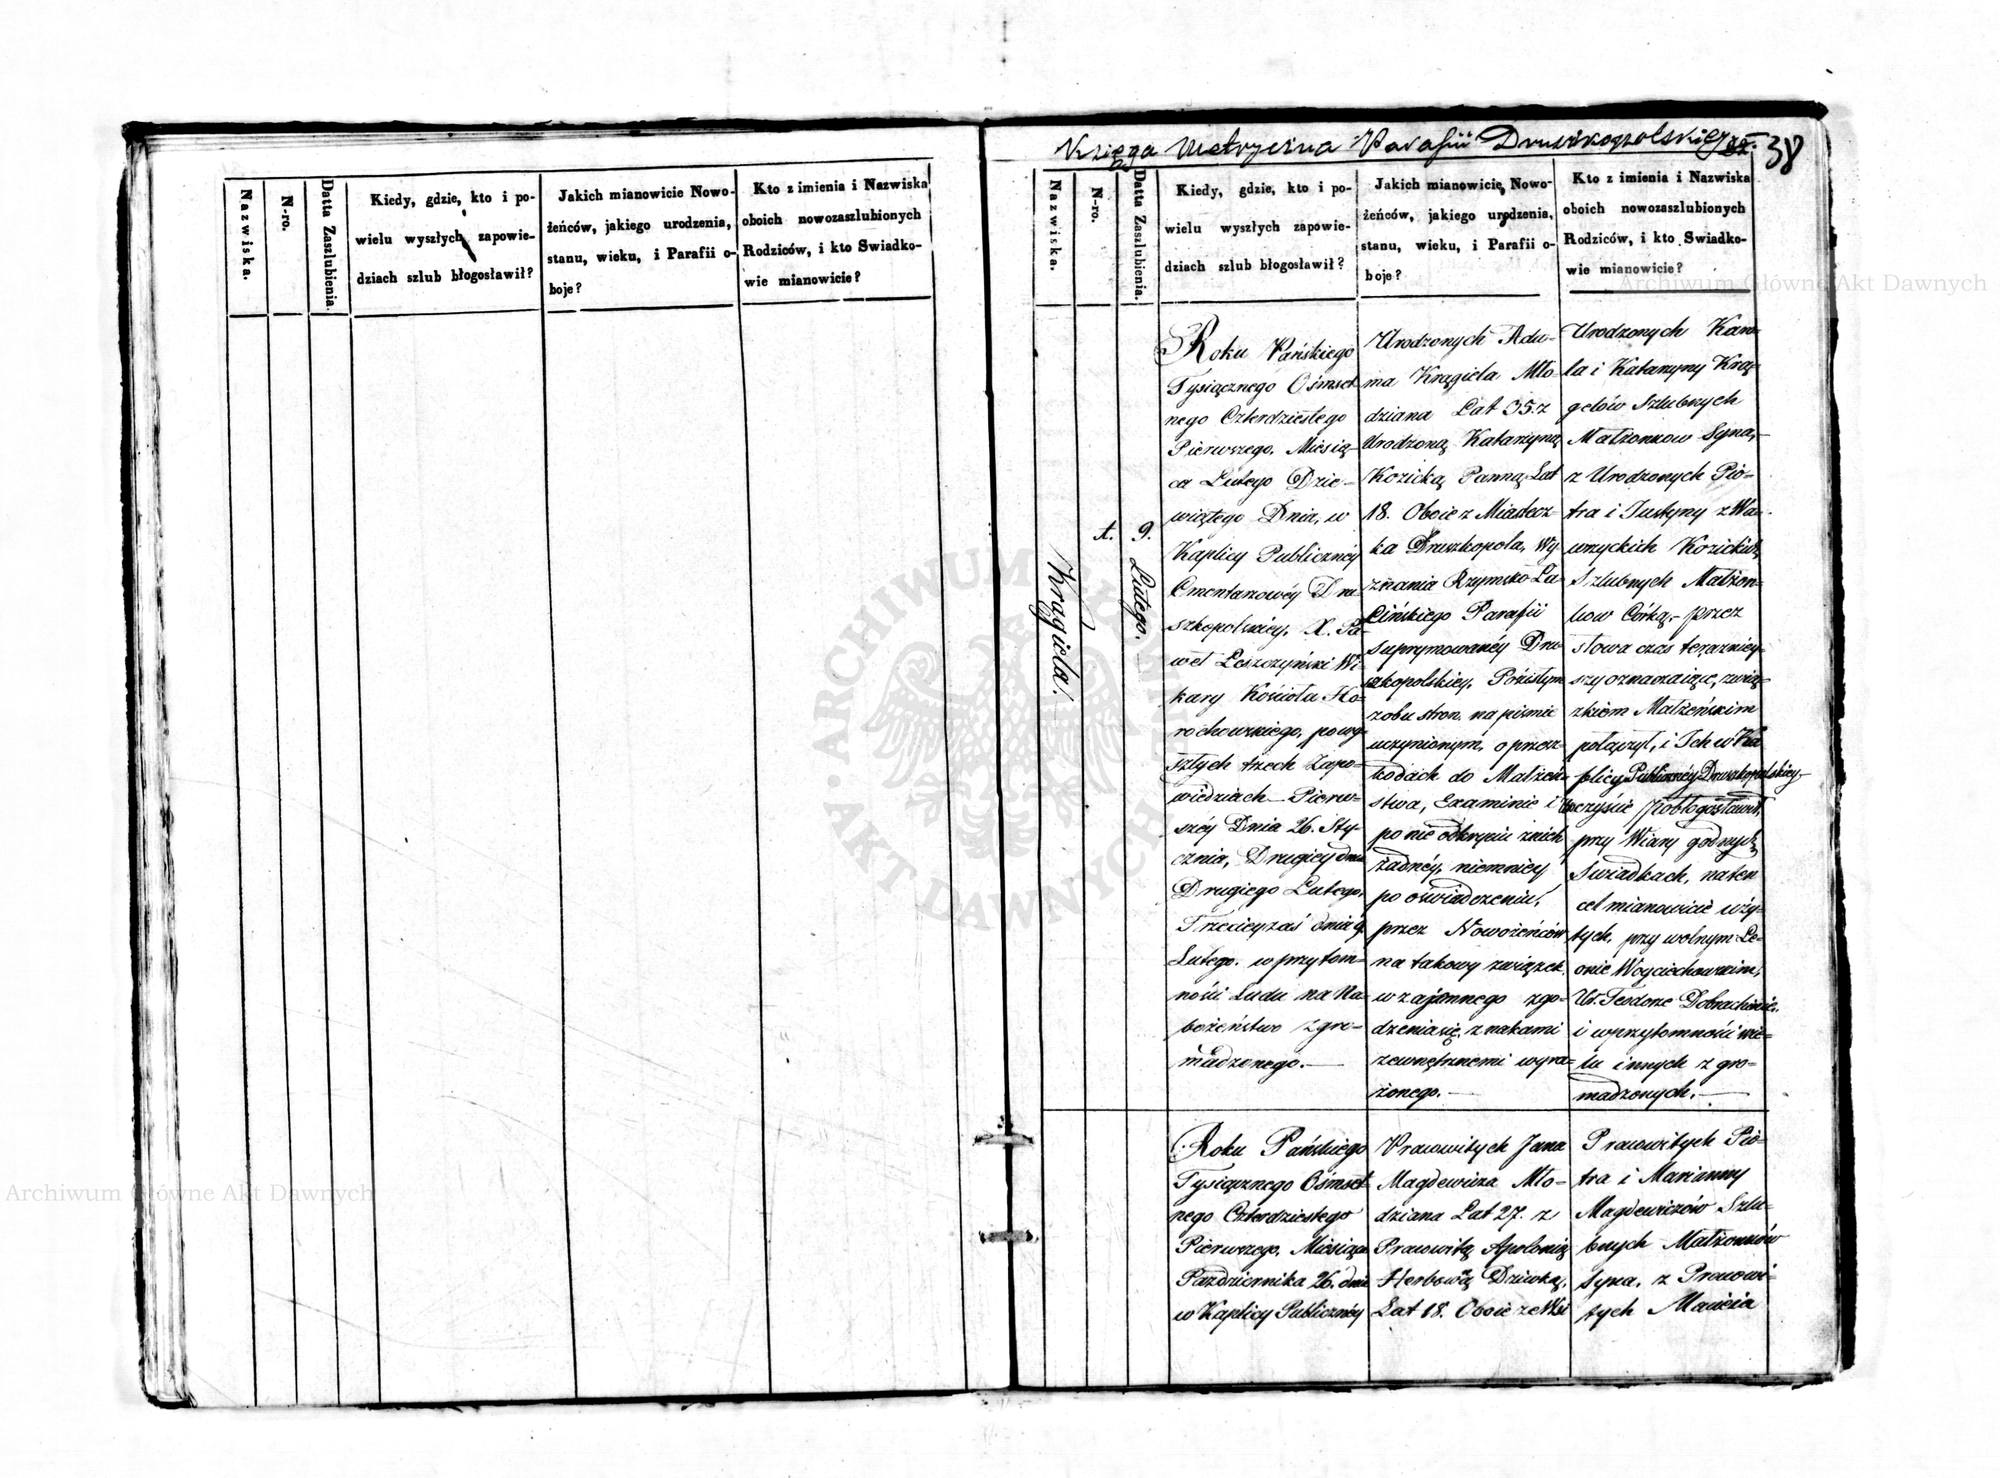 Księga Metryczna Parafii Druszkopolskiej
38
Nazwiska.
N-ro.
Datta Zaszlubienia.
Kiedy, gdzie, kto i po-
wielu wyszłych zapowie-
dziach szlub błogosławił?
Jakich mianowicie Nowo-
żeńców, jakiego urodzenia,
stanu, wieku, i Parafii o-
boje?
Kto z imienia i Nazwiska
oboich nowozaszlubionych
Rodziców, i kto Swiadko-
wie mianowicie?
Nazwiska.
N-ro.
Datta Zaszlubienia.
Kiedy, gdzie, kto i po-
wielu wyszłych zapowie-
dziach szlub błogosławił?
Jakich mianowicie Nowo-
żeńców, jakiego urodzenia,
stanu, wieku, i Parafii o-
boje?
Kto z imienia i Nazwiska
oboich nowozaszlubionych
Rodziców, i kto Swiadko-
wie mianowicie?
Krągiela.
1.
9. Lutego.
Roku Pańskiego
Tysiącznego Ośmset
nego Czterdziestego
Pierwszego, Miesią-
ca Lutego Dzie-
wiątego Dnia, w
Kaplicy Publicznéy
Cmentarzowéy Dru
szkopolskiey, X. Pa-
weł Leszczyński Wi-
kary Kościoła Ho-
rochowskiego, po wy-
szłych trzech Zapo-
wiedziach Pierw-
széy Dnia 26. Sty-
cznia, Drugiey dnia
Drugiego Lutego,
Trzeciey zaś dnia 9
Lutego. w przytom-
ności Ludu na Na-
bożeństwo zgro-
madzonego.
Urodzonych Ada-
ma Krągiela Mło-
dziana Lat 35. z
Urodzoną Katarzyną
Kozicką Panną Lat
18. Oboie z Miastecz-
ka Druszkopola, Wy
znania Rzymsko-Ła-
cińskiego Parafii
Suprymowanéy Dru
szkopolskiey,
z obu stron. na piśmie
uczynionym, o przesz-
kodach do Małżeń-
stwa, Examinie i
po nie odkryciu z nich
żadnéy, niemniey
po oświadczeniu,
przez Nowożeńców
na takowy związek
wzajemnego zgo-
dzenia się, znakami
zewnętrznemi wyra-
żonego.
Urodzonych Karo-
la i Katarzyny Krą-
gelów Szlubnych
Małżonkow Syna,
z Urodzonych Pio-
tra i Justyny z Wa-
wrzyckich Kozickich
Szlubnych Małżon-
kow Córką, przez
słowa czas teraźniey-
szy oznaczaiące, zwią-
zkiem Małżeńskim
połączył, i Ich w Ka
plicy Publicznéy Druszkopolskiey
uroczyście pobłogosławił,
przy Wiary godnych
Swiadkach, na ten
cel mianowicie uży-
tych, przy wolnym Le-
onie Woyciechowskim,
Ur. Teodorze
i w przytomności wie-
lu innych zgro-
madzonych.
Roku Pańskiego
Tysiącznego Ośmset
nego Czterdziestego
Pierwszego, Miesiąca
Października 26. dnia
w Kaplicy Publicznéy
Pracowitych Jana
Magdewicza Mło-
dziana Lat 27. z
Pracowitą Apolonią
Herbową Dziewką,
Lat 18. Oboie ze Wsi
Pracowitych Pio-
tra i Marianny
Magdewiczów Szlu-
bnych Małżonków
syna, z Pracowi-
tych Macieia
Archiwum Główne Akt Dawnych
Archiwum Główne Akt Dawnych